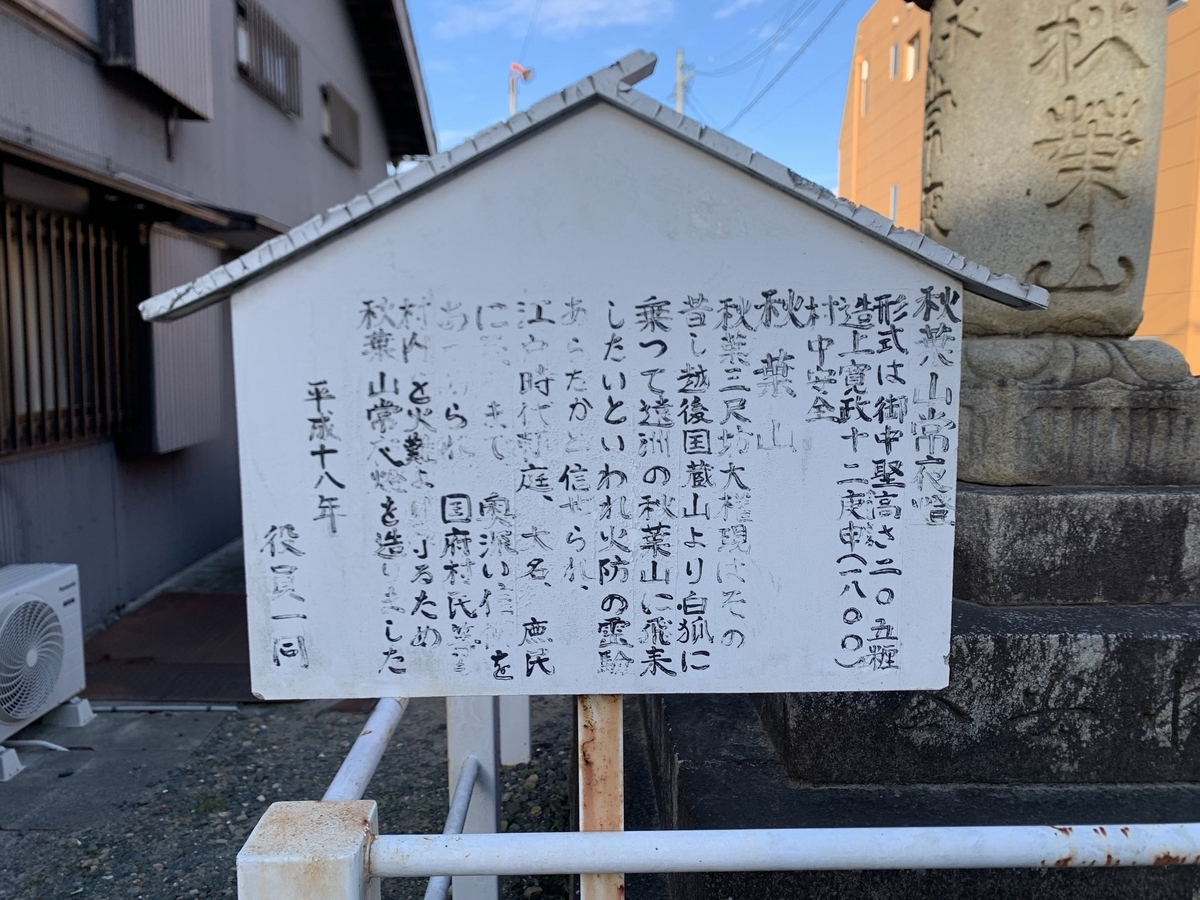 秋葉山常夜燈
形式は御中堅高さ二〇五糎
造上寛政十二庚申(一八〇〇)
村中安全
秋葉山
秋葉三尺坊大権現はその
昔し越後国蔵山より白狐に
乗って遠洲の秋葉山に飛来
したいといわれ火防の霊験
あらたかと信せられ、
江戸時代 庭、大名、庶民
に まて 奥深い信 を
あ られ 国府村民
村内 と火難よ するため
秋葉山常夜燈を造りました
平成十八年
役員一同
秋葉山